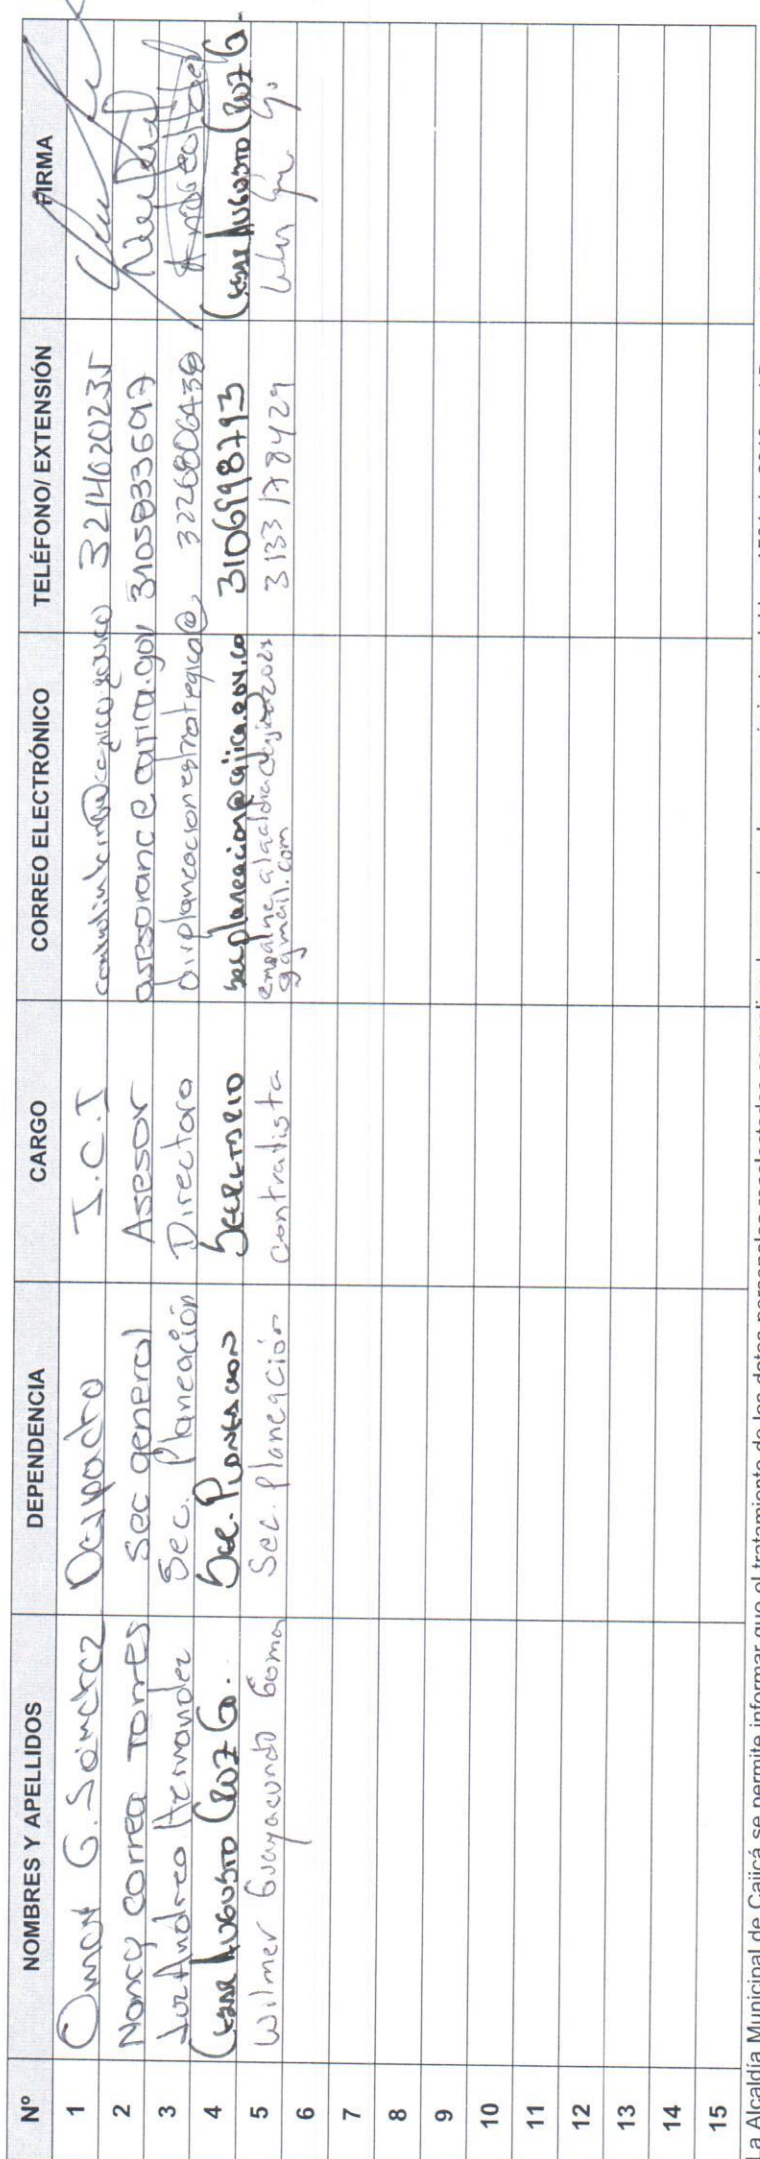 Nº NOMBRES Y APELLIDOS DEPENDENCIA CARGO CORREO ELECTRÓNICO TELÉFONO/ EXTENSIÓN FIRMA
1 Omar G. Sánchez Despacho J.C.I 3214620235
2 Nancy Correa Torres Sec general Asesor 3105833697
3 Luz Andrea Hernandez Sec. Planeación Directora dirplaneacionestrategica@ 3226806438
4 Cesar Augusto Cruz G. Sec. Planeacion Secretario secplaneacion@cajica.gov.co 3106998793 Cesar Augusto Cruz G.
5 Wilmer Guayacundo Gomez Sec. Planeación Contratista 3133178429
6
7
8
9
10
11
12
13
14
15
La Alcaldía Municipal de Cajicá se permite informar que el tratamiento de los datos personales recolectados